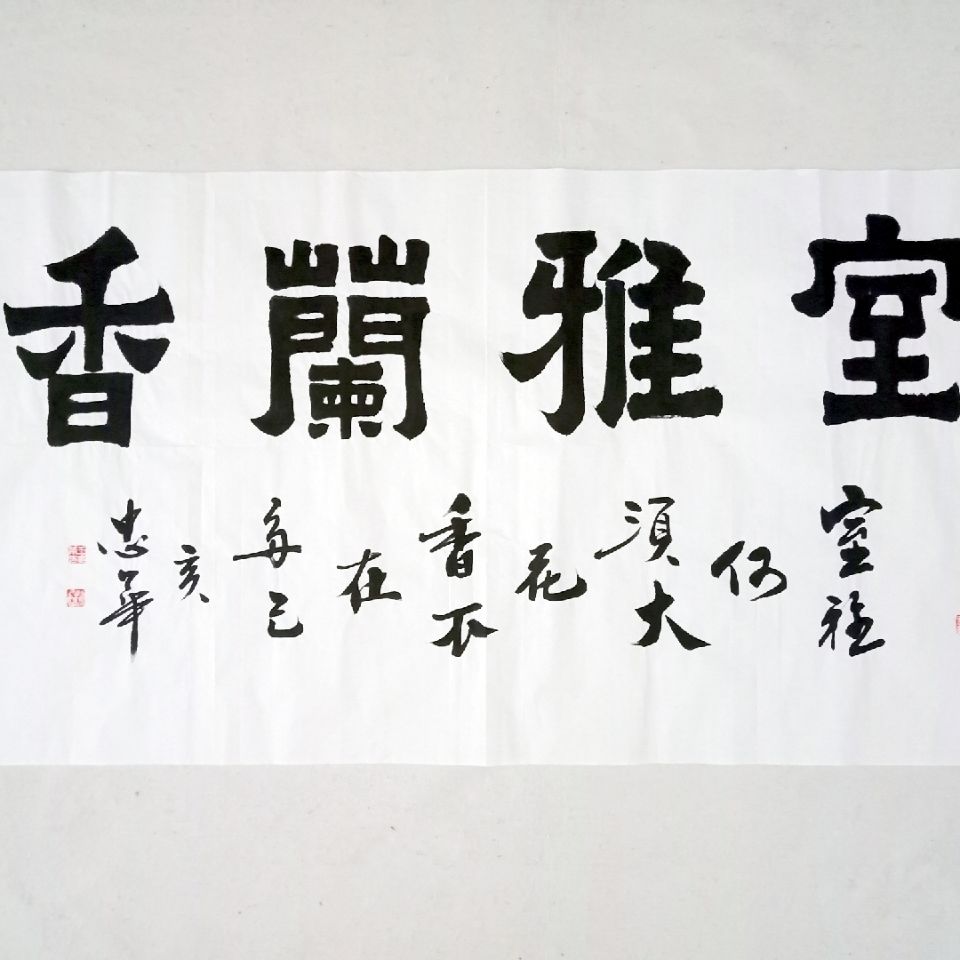 室雅蘭香
室雅
何
須大
花
香不
在
多己
亥
忠華